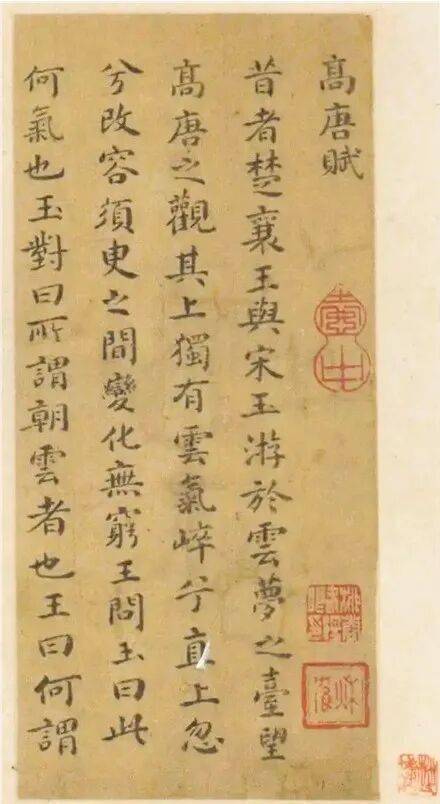 高唐賦
昔者楚襄王與宋玉游於雲夢之臺望
高唐之觀其上獨有雲氣崪兮直上忽
兮改容須臾之間變化無窮王問玉曰此
何氣也玉對曰所謂朝雲者也王曰何謂